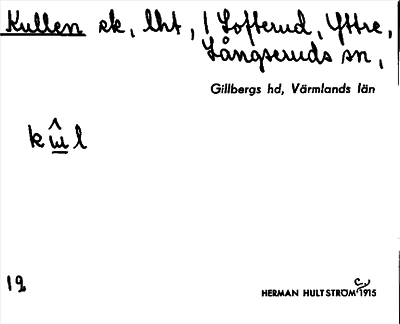 Kullen sk, lht, / Lofterud, Yttre,
Långseruds sn,
Gillbergs hd, Värmlands län
12
HERMAN HULTSTRÖM 1915